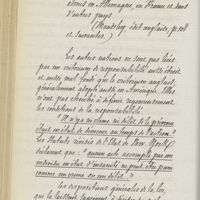 alisés en Allemagne, en France et dans
d'autres pays.
(Maudsley, édit. anglaise, p.
et suivantes.)
Les autres nations ne sont pas liées
par un criterium de responsabilité aussi étroit
et aussi mal fondé que le criterium anglais
généralement adopté aussi en Amérique. Elles
n'ont pas cherché à définir rigoureusement
les conditions de la responsabilité.
"Il n'y a ni crime ni délit si le prévenu
était en état de démence au temps de l'action."
Les Statuts révisés de l'Etat de New York
déclarent que: "aucun acte accompli par un
individu en état d'insanité ne peut être puni
comme un crime ou un délit."
Les dispositions générales de la loi,
qui